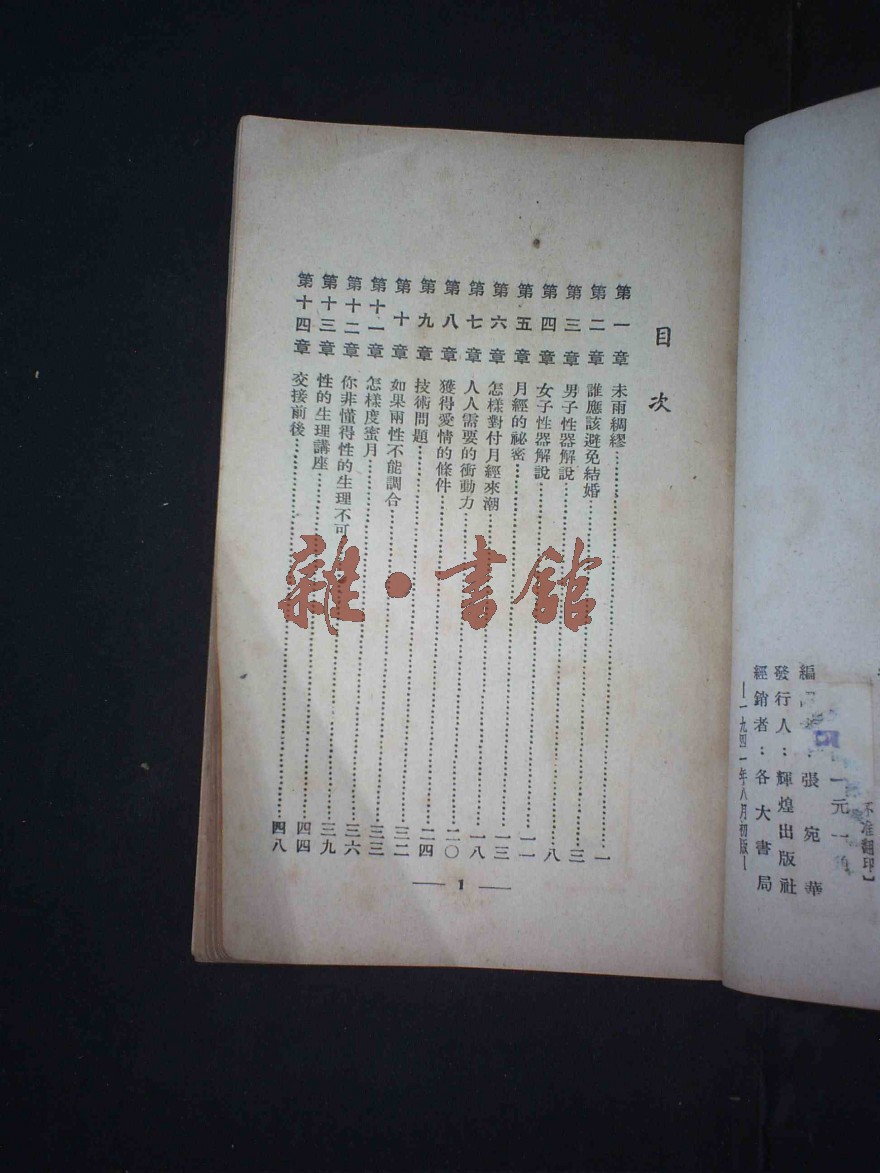 不准翻印】
一元一
編 張宛華
發行人：輝煌出版社
經銷者：各大書局
—一九四一年八月初版—
目次
第一章 未雨綢繆……一
第二章 誰應該避免結婚……三
第三章 男子性器解說……八
第四章 女子性器解說……一一
第五章 月經的祕密……一三
第六章 怎樣對付月經來潮……一八
第七章 人人需要的衝動力……二〇
第八章 獲得愛情的條件……二四
第九章 技術問題……三二
第十章 如果兩性不能調合……三三
第十一章 怎樣度蜜月……三六
第十二章 你非懂得性的生理不可……三九
第十三章 性的生理講座……四四
第十四章 交接前後……四八
— 1 —
雜·書館